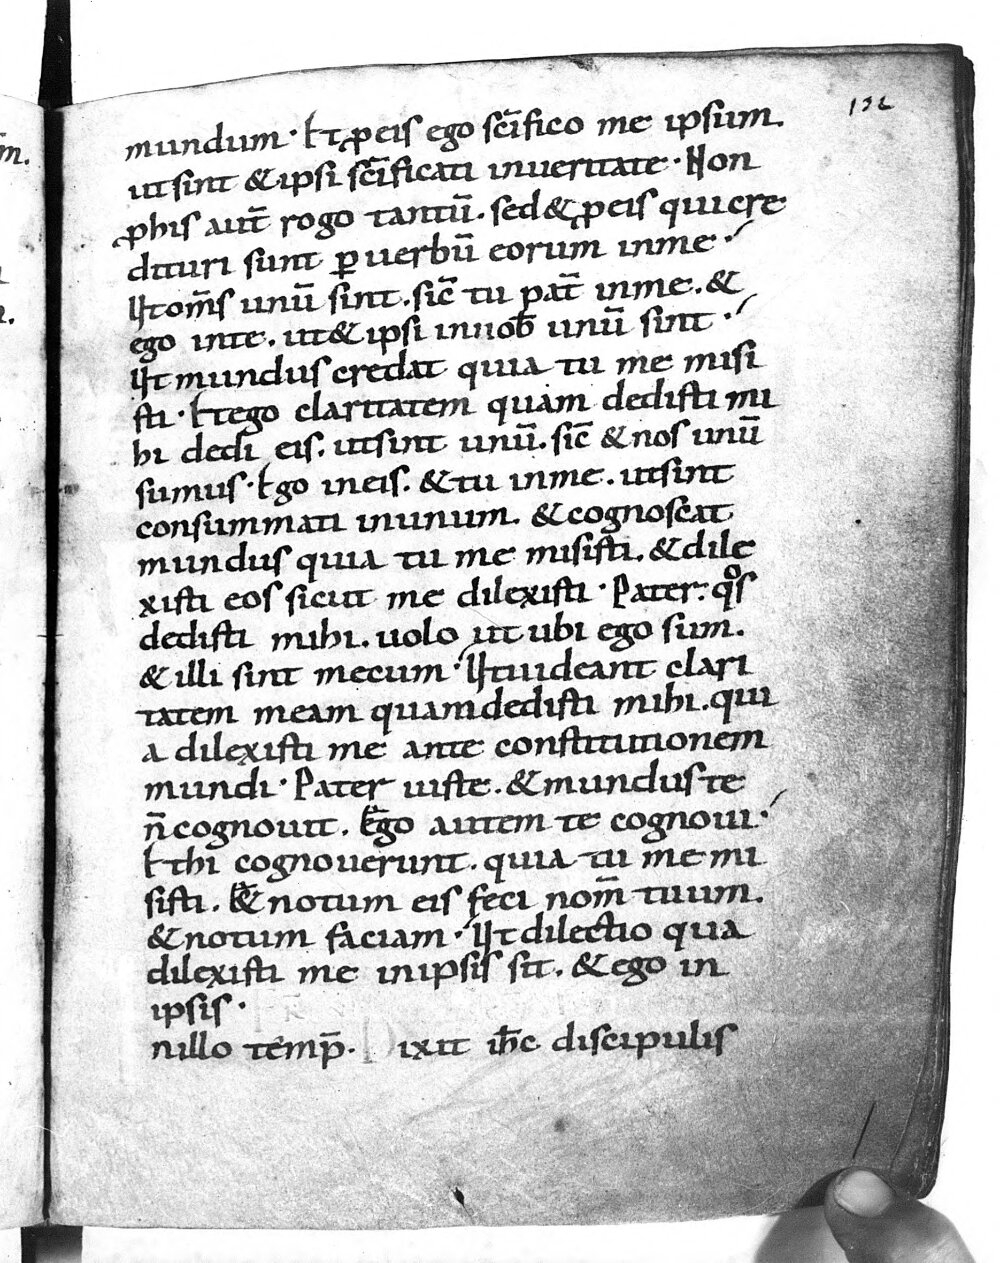 132
mundum · Et ꝓ eis ego sc̄ifico me ipsum.
ut sint & ipsi sc̄ificati in ueritate · Non
ꝓ his aut̄ rogo tantū. sed & ꝓ eis qui cre
dituri sunt ꝑ uerbū eorum in me ·
Ut om̄s unū sint. sic̄ tu pat̄ in me. &
ego in te. ut & ipsi in nob̄ unū sint ·
Ut mundus credat quia tu me misi
sti · Et ego claritatem quam dedisti mi
hi dedi eis. ut sint unū. sic̄ & nos unū
sumus · Ego in eis. & tu in me. ut sint
consummati in unum. & cognoscat
mundus quia tu me misisti. & dile
xisti eos sicut me dilexisti · Pater. qͦs
dedisti mihi. uolo ut ubi ego sum.
& illi sint mecum · Ut uideant clari
tatem meam quam dedisti mihi. qui
a dilexisti me ante constitutionem
mundi · Pater iuste. & mundus te
n̄ cognouit. Ego autem te cognoui ·
Et hi cognouerunt. quia tu me mi
sisti. Et notum eis feci nom̄ tuum.
& notum faciam · Ut dilectio qua
dilexisti me in ipsis sit. & ego in
ipsis ·
n illo temp̄. Dixit ih̄c discipulis